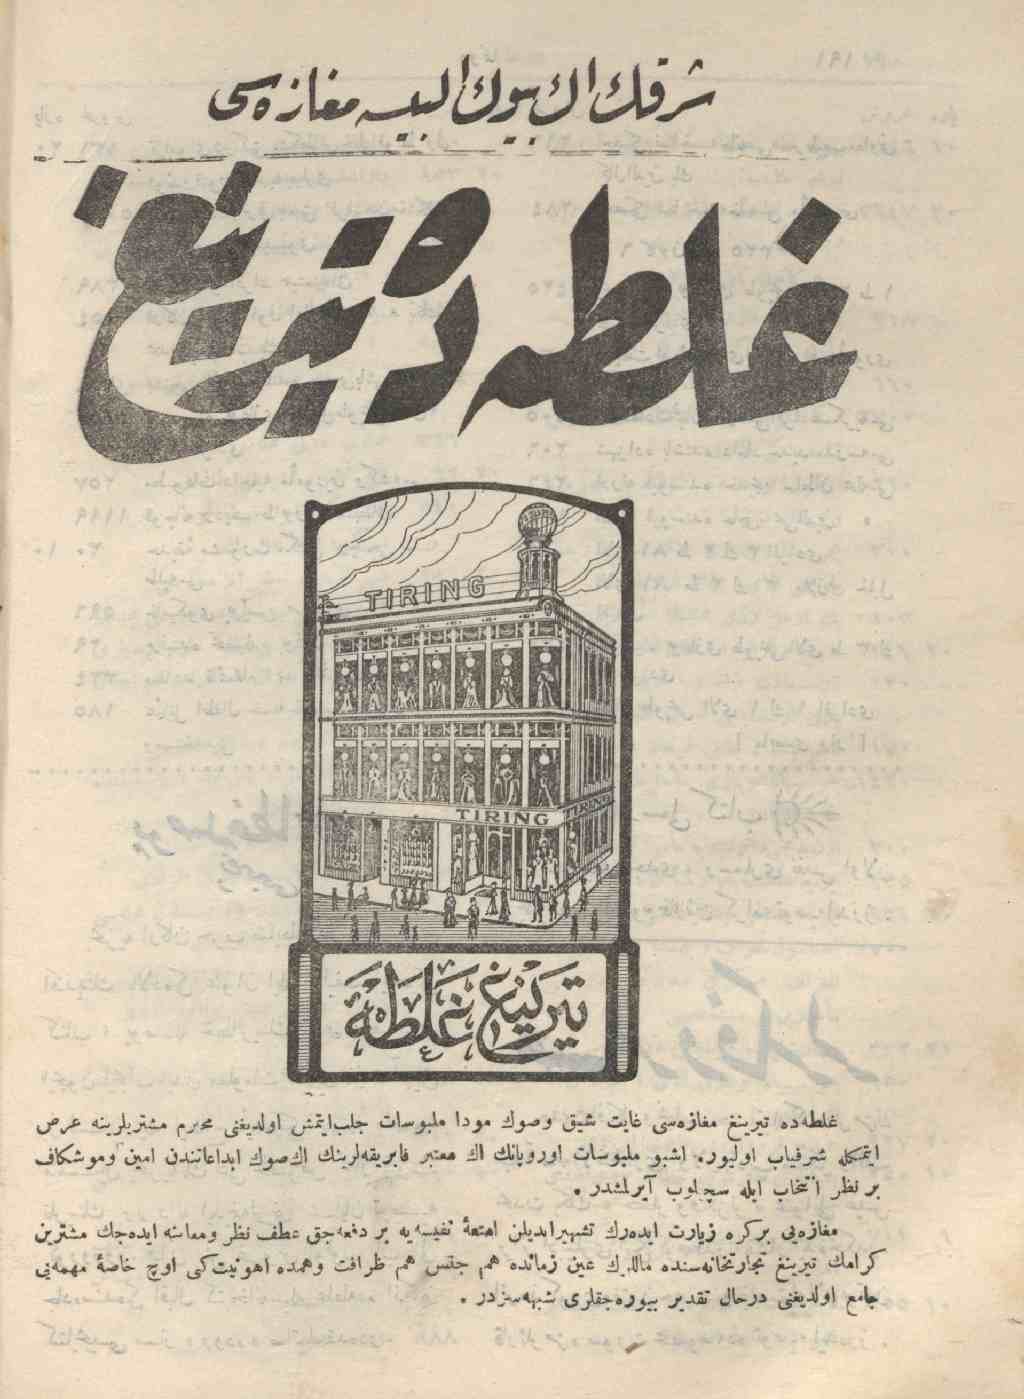 شرقك اك بيوك البسه مغازه‌سى
غلطه‌ده تيرينغ
TIRING
TIRING
تيرينغ غلطه
غلطه‌ده تيرينغ مغازه‌سى غايت شيق وصوك مودا ملبوسات جلب‌ايتمش اولديغنى محترم مشتريلرينه عرض
ايتمكله شرفياب اوليور. اشبو ملبوسات اوروپانك اك معتبر فابريقه‌لرينك اك‌صوك ابداعاتندن امين وموشكاف
بر نظر انتخاب ايله سچيلوب آيرلمشدر .
مغازه‌يى بركره زيارت ايده‌رك تشهير‌ايديلن امتعۀ نفيسه‌يه بر دفعه‌جق عطف نظر ومعاينه ايده‌جك مشترين
كرامك تيرينغ تجارتخانه‌سنده ماللرك عين زمانده هم جنس هم ظرافت وهمده اهونيت‌كى اوچ خاصۀ مهمه‌يى
جامع اولديغنى درحال تقدير بيوره‌جقلرى شبهه‌سزدر .